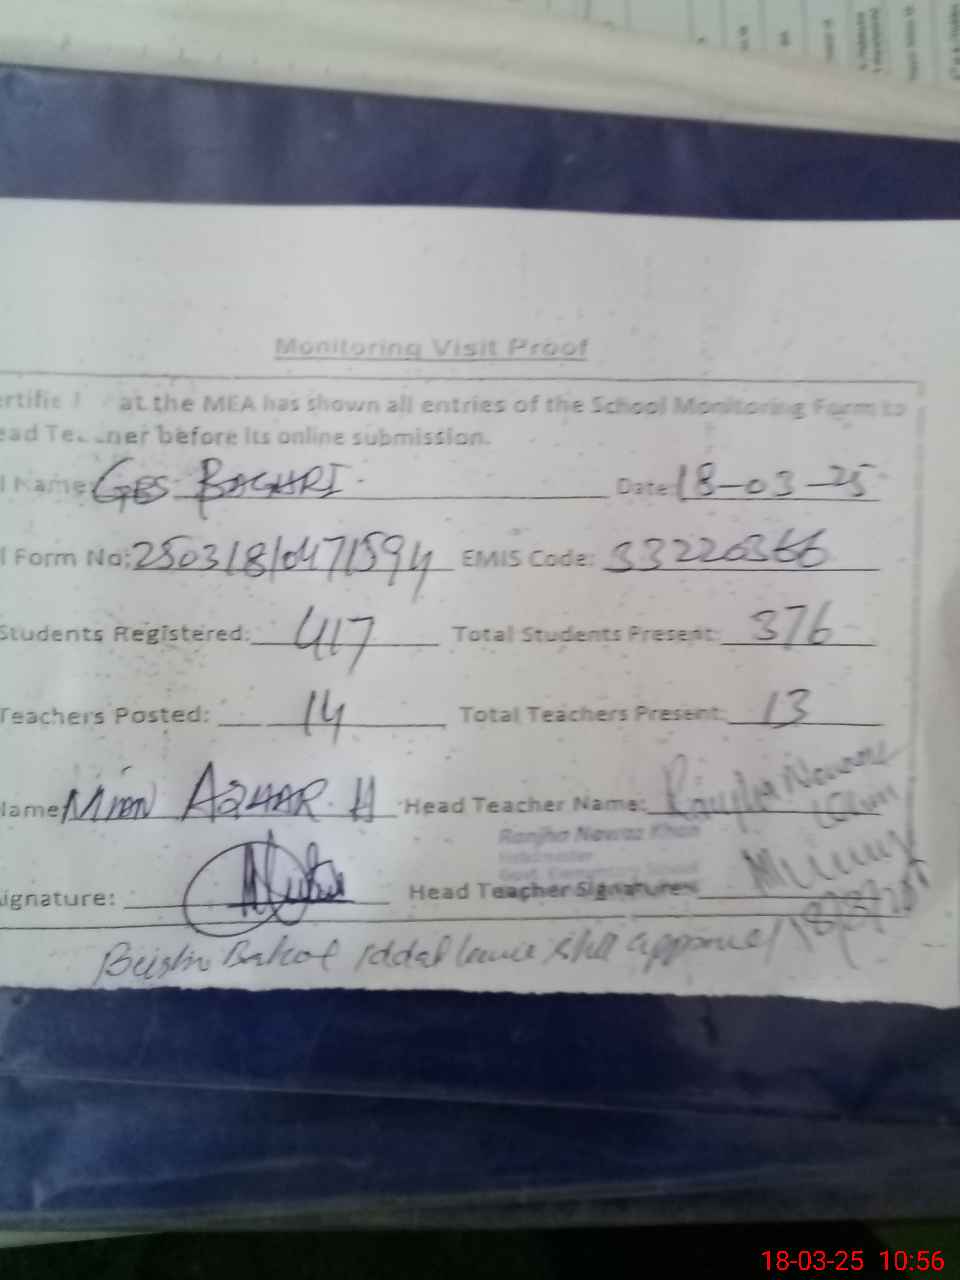 Monitoring Visit Proof
at the MEA has shown all entries of the School Monitoring Form to
before its online submission.
Name: GES BAGHRI. Date: 18-03-25
Form No: 250318/0471594 EMIS Code: 33220366
Students Registered: 417 Total Students Present: 376
Teachers Posted: 14 Total Teachers Present: 13
MIAN AZHAR. H Head Teacher Name: Ranjha Nawaz
Khan
Ranjha Nawaz Khan
Headmaster
Govt. Elementary School
ignature: Head Teacher Signature:
18/3/25
leave still
18-03-25 10:56